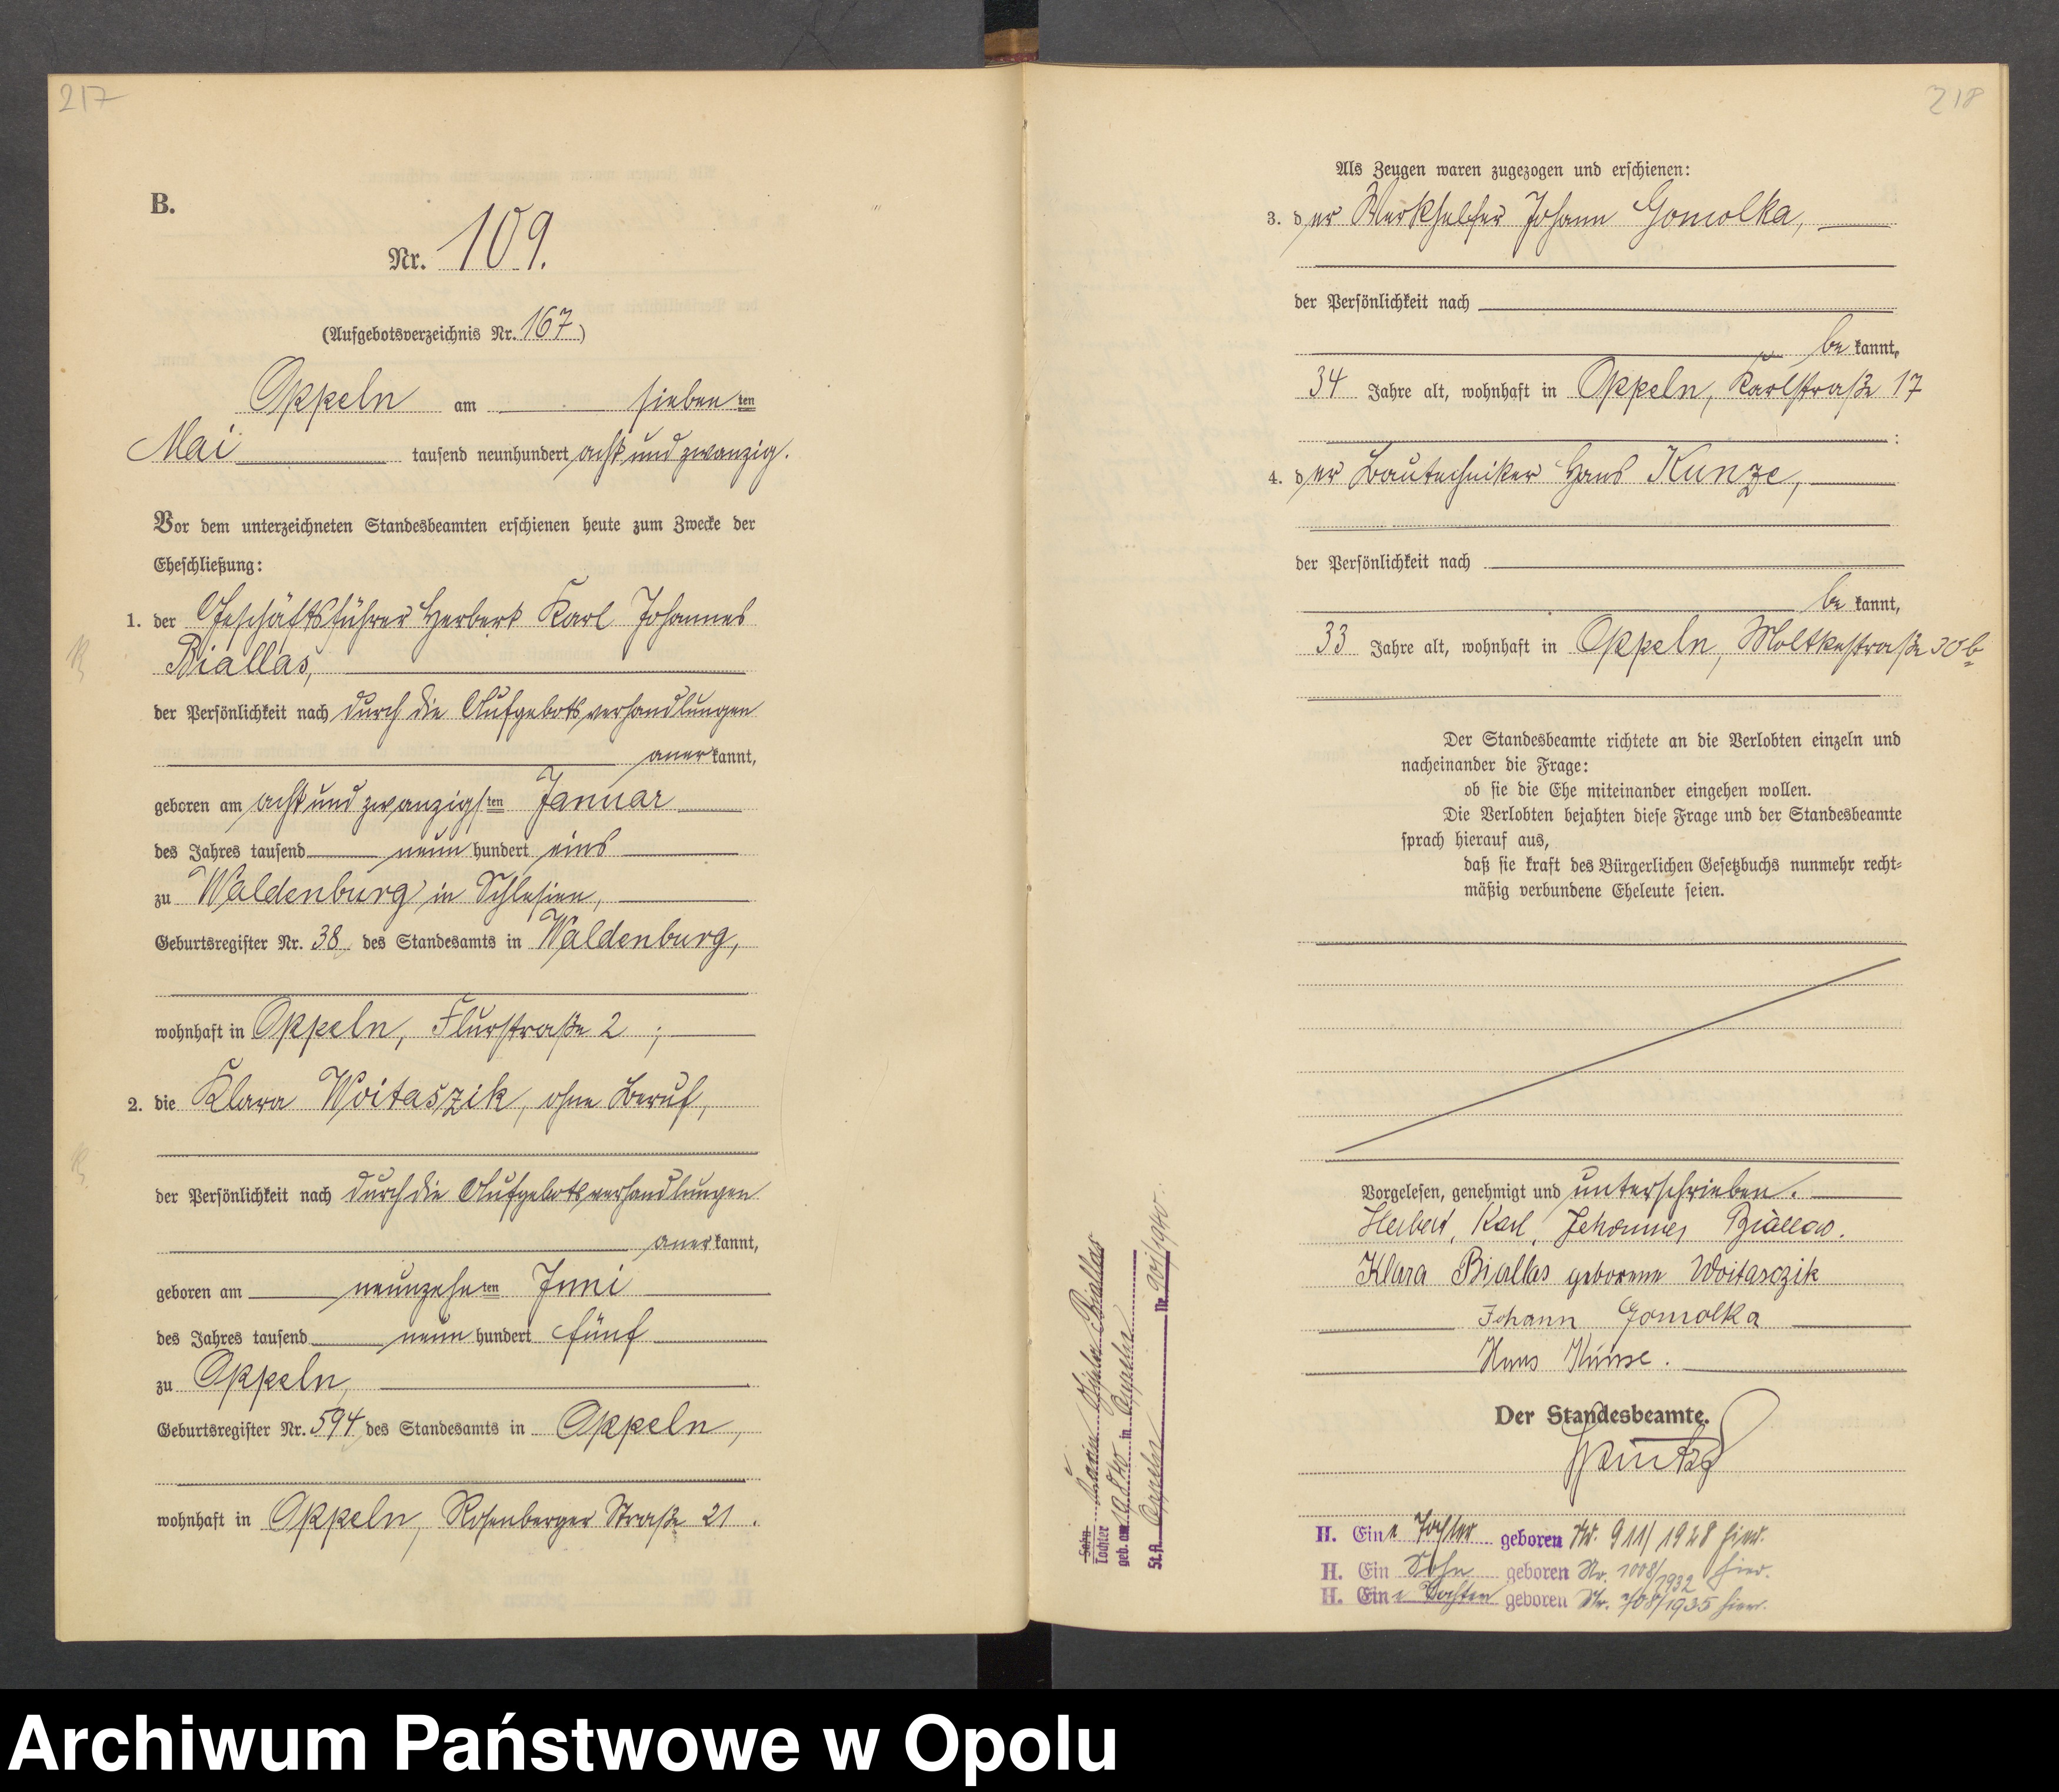 217
B.
Nr. 109.
(Aufgebotsverzeichnis Nr. 167)
Oppeln am sieben ten
Mai tausend neunhundert acht und zwanzig.
Vor dem unterzeichneten Standesbeamten erschienen heute zum Zwecke der
Eheschließung:
1. der Geschäftsführer Herbert Karl Johannes
Biallas,
der Persönlichkeit nach durch die Aufgebotsverhandlungen
aner kannt,
geboren am acht und zwanzigs ten Januar
des Jahres tausend neun hundert eins
zu Waldenburg in Schlesien,
Geburtsregister Nr. 38 des Standesamts in Waldenburg,
wohnhaft in Oppeln, Flurstraße 2 ;
2. die Klara Woitaszik, ohne Beruf,
der Persönlichkeit nach durch die Aufgebotsverhandlungen
aner kannt,
geboren am neunzehn ten Juni
des Jahres tausend neun hundert fünf
zu Oppeln,
Geburtsregister Nr. 594 des Standesamts in Oppeln,
wohnhaft in Oppeln, Rosenberger Straße 21.
218
Als Zeugen waren zugezogen und erschienen:
3. d er Werkhelfer Johann Gomolka,
der Persönlichkeit nach
be kannt,
34 Jahre alt, wohnhaft in Oppeln, Karlstraße 17
:
4. d er Bautechniker Hans Kunze,
der Persönlichkeit nach
be kannt,
33 Jahre alt, wohnhaft in Oppeln, Moltkestraße 30b
Der Standesbeamte richtete an die Verlobten einzeln und
nacheinander die Frage:
ob sie die Ehe miteinander eingehen wollen.
Die Verlobten bejahten diese Frage und der Standesbeamte
sprach hierauf aus,
daß sie kraft des Bürgerlichen Gesetzbuchs nunmehr recht=
mäßig verbundene Eheleute seien.
Vorgelesen, genehmigt und unterschrieben.
Herbert, Karl, Johannes Biallas.
Klara Biallas geborene Woitasczik
Johann Gomolka
Hans Kunze.
Der Standesbeamte.
H. Ein e Tochter geboren Nr. 911/1928 hier.
H. Ein Sohn geboren Nr. 1008/1932 hier.
H. Ein e Tochter geboren Nr. 708/1935 hier.
Sohn
Tochter Biallas
geb. am 19.8.40 in Oppeln
St.A. Oppeln Nr. 901/1940.
Archiwum Państwowe w Opolu